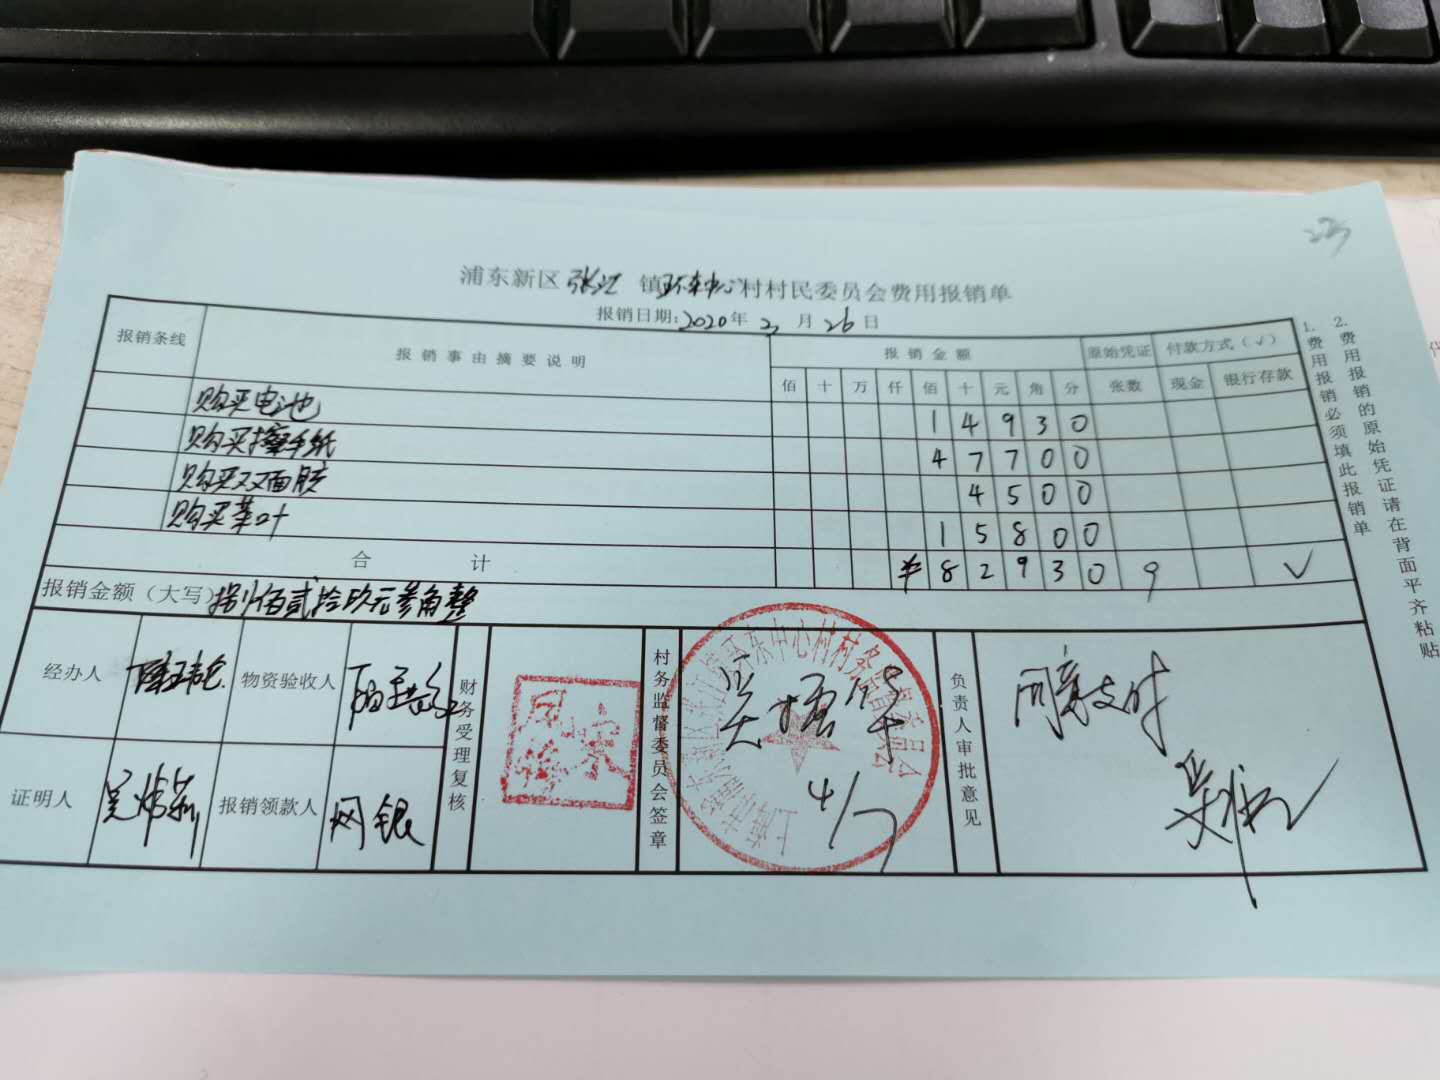 23
浦东新区张江镇环东中心村村民委员会费用报销单
报销日期:2020年2月26日
报销条线 报销事由摘要说明 报销金额 原始凭证 付款方式(√)
佰 十 万 仟 佰 十 元 角 分 张数 现金 银行存款
购买电池 1 4 9 3 0
购买擦手纸 4 7 7 0 0
购买双面胶 4 5 0 0
购买茶叶 1 5 8 0 0
合计 ¥ 8 2 9 3 0 9 √
报销金额(大写)捌佰贰拾玖元叁角整
经办人 物资验收人
证明人 报销领款人 网银
财务受理复核
村务监督委员会签章
4/7
负责人审批意见
同意支付
1.费用报销必须填此报销单
2.费用报销的原始凭证请在背面平齐粘贴